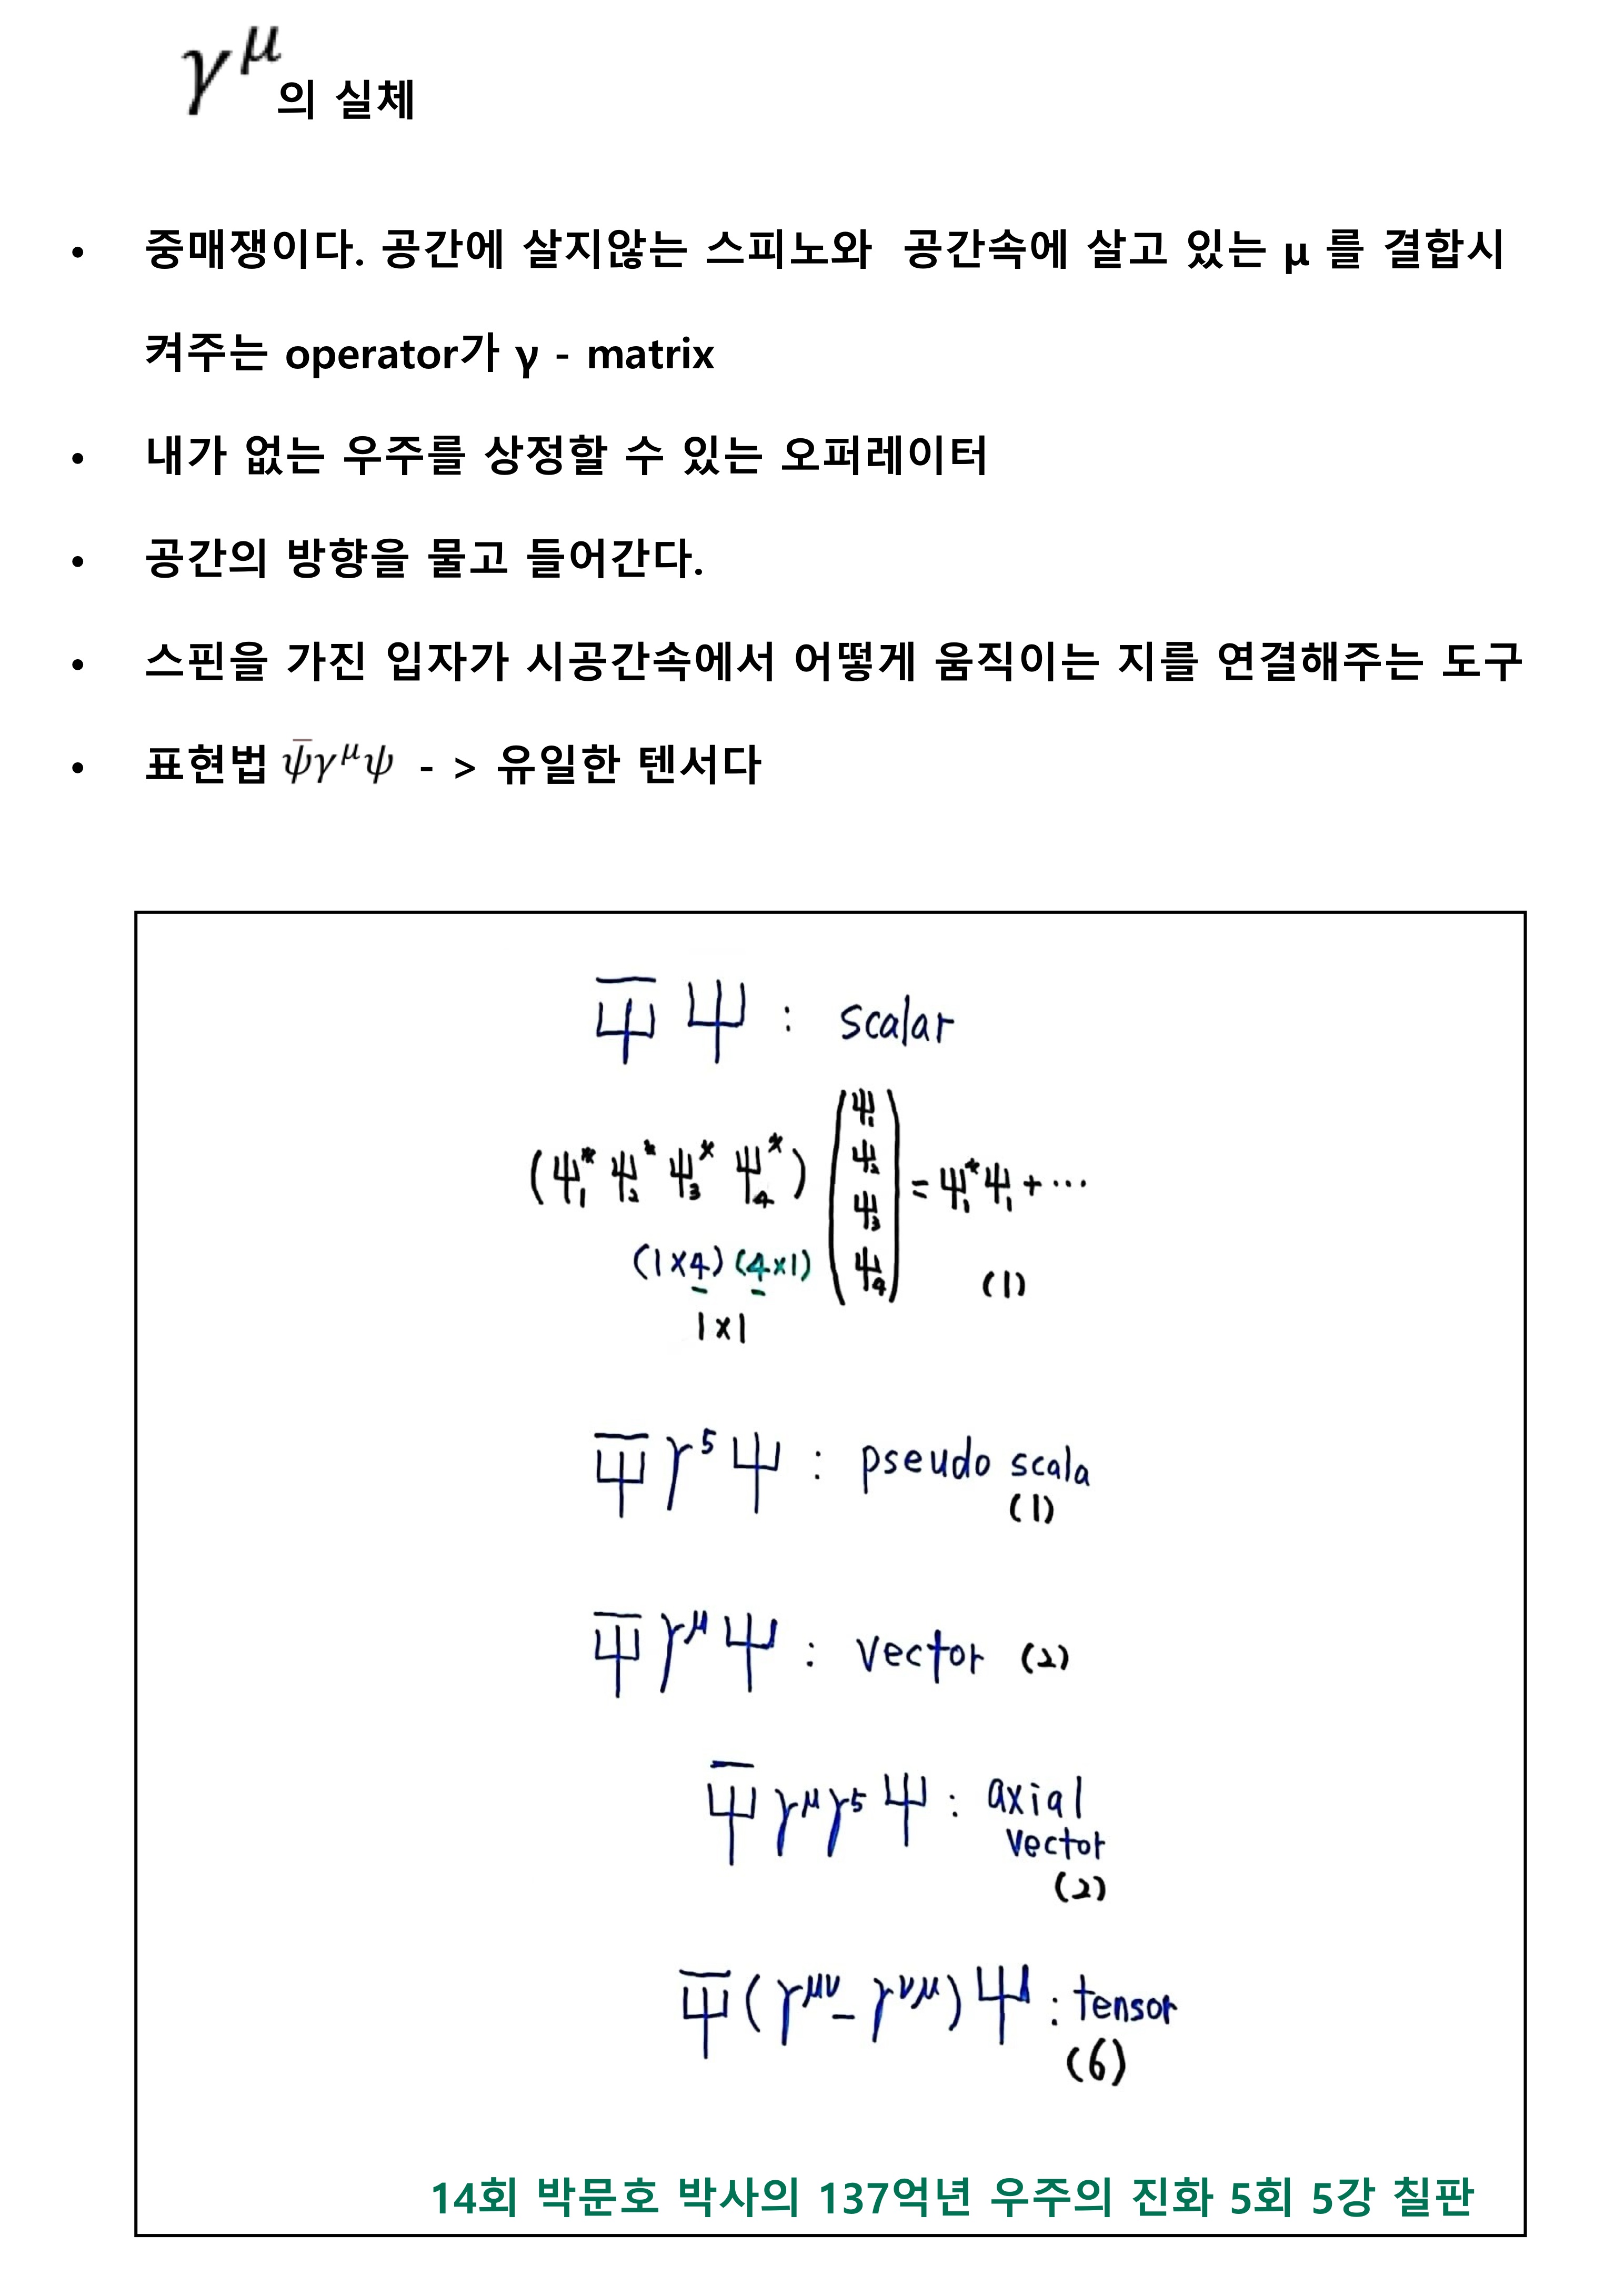 γ^μ의 실체
• 중매쟁이다. 공간에 살지않는 스피노와 공간속에 살고 있는 μ 를 결합시
켜주는 operator가 γ - matrix
• 내가 없는 우주를 상정할 수 있는 오퍼레이터
• 공간의 방향을 물고 들어간다.
• 스핀을 가진 입자가 시공간속에서 어떻게 움직이는 지를 연결해주는 도구
• 표현법 ψ̅γ^μψ - > 유일한 텐서다
Ψ̅ Ψ : scalar
(Ψ₁* Ψ₂* Ψ₃* Ψ₄*) (Ψ₁ Ψ₂ Ψ₃ Ψ₄) = Ψ₁*Ψ₁ + ⋯
(1×4) (4×1) (1)
1×1
Ψ̅ γ⁵ Ψ : pseudo scala
(1)
Ψ̅ γ^μ Ψ : vector (2)
Ψ̅ γ^μ γ⁵ Ψ : axial
vector
(2)
Ψ̅ (γ^μν - γ^νμ) Ψ : tensor
(6)
14회 박문호 박사의 137억년 우주의 진화 5회 5강 칠판